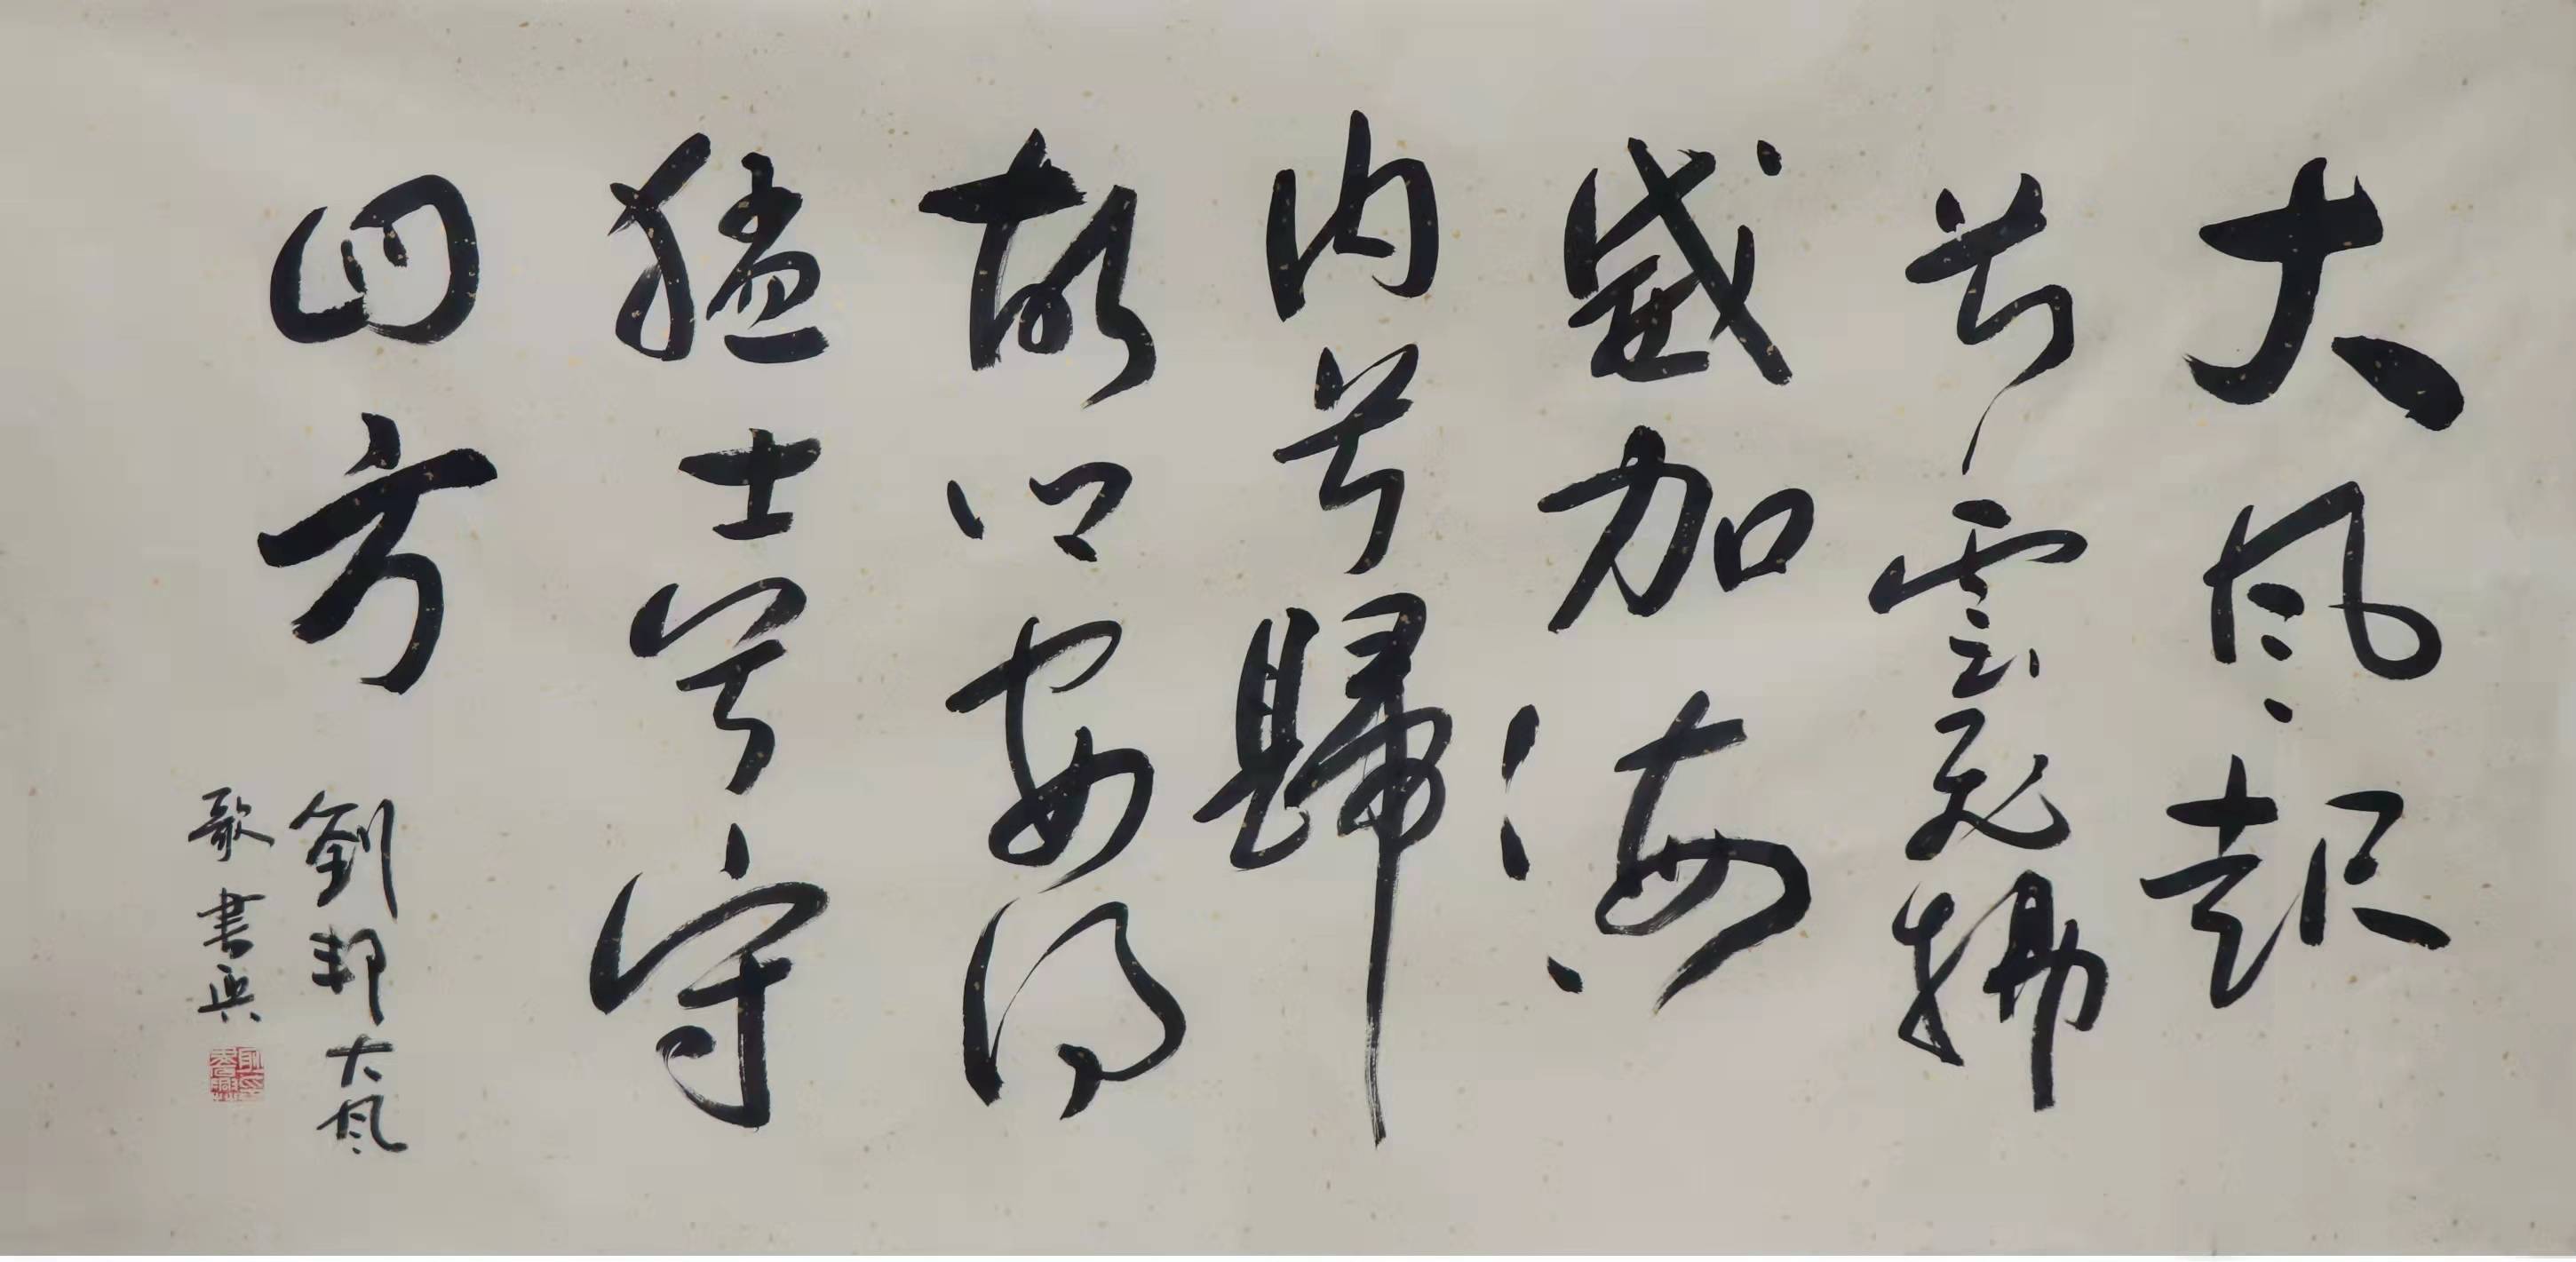 大風起
兮雲飛揚
威加海
内兮歸
故鄉安得
猛士兮守
四方
劉邦大風
歌 書興